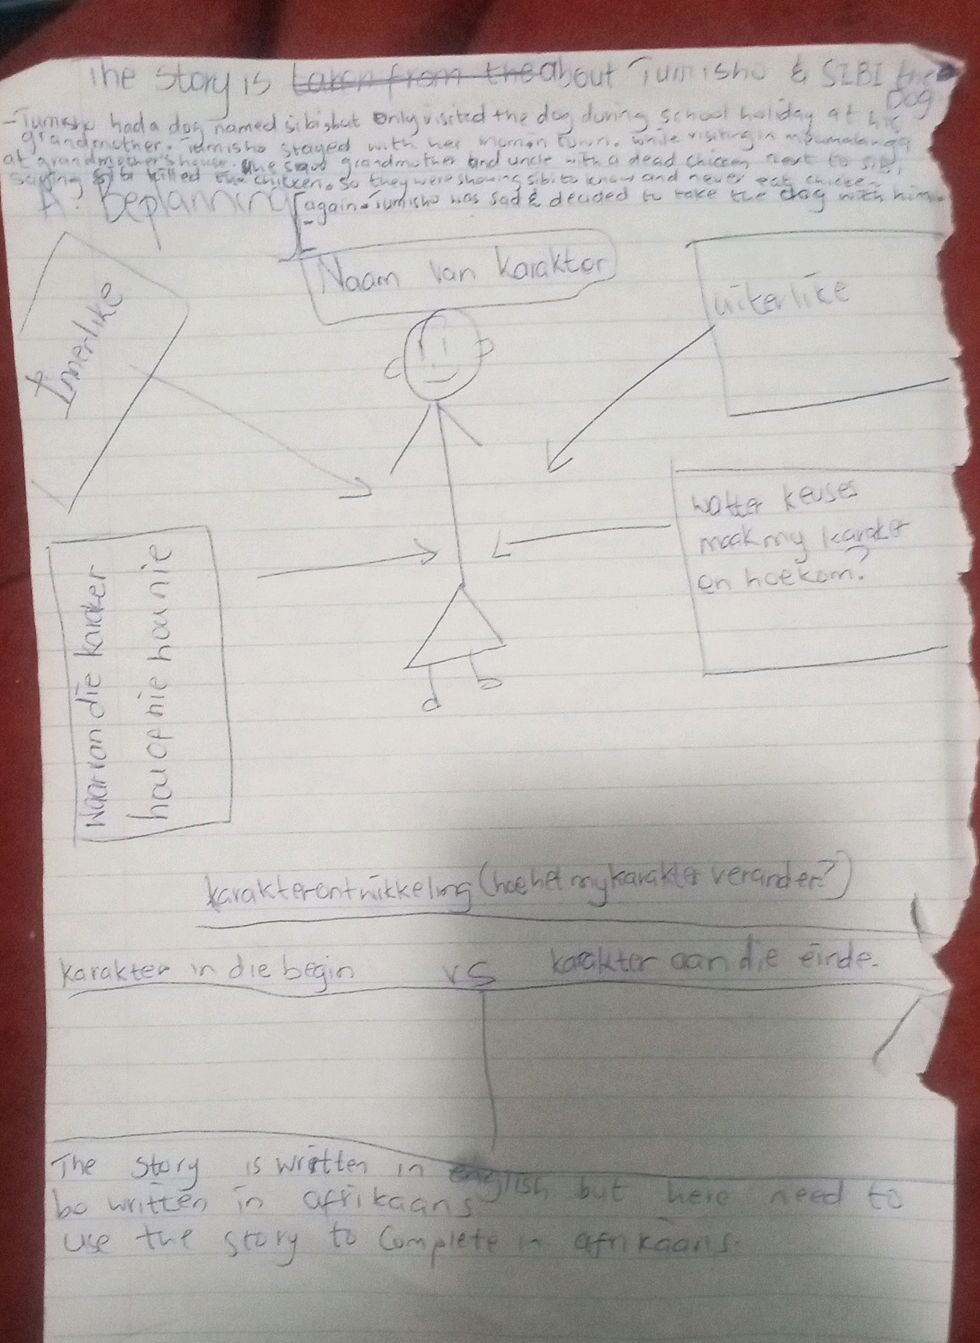 The story is taken from the about Tumisho & SIBI the
Dog
- Tumisho had a dog named sibi but only visited the dog during school holiday at his
grandmother. Tumisho stayed with her mum in town. While visiting in mpumalanga
at grandmother's house. she grandmother and uncle with a dead chicken next to sibi,
saying sibi killed the chicken. so they were showing sibi to know and never eat chicken
again. Tumisho was sad & decided to take the dog with him.
A: Beplanning
Naam van Karakter
Innerlike
uiterlike
watter keuses
maak my karakter
en hoekom?
Waarvan die karakter
hou of nie hou nie
karakterontwikkeling (hoe het my karakter verander?)
karakter in die begin vs karakter aan die einde.
The story is written in english but here need to
be written in afrikaans
use the story to complete in afrikaans.